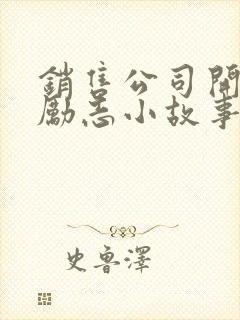 銷售公司開
勵志小故事
史魯澤